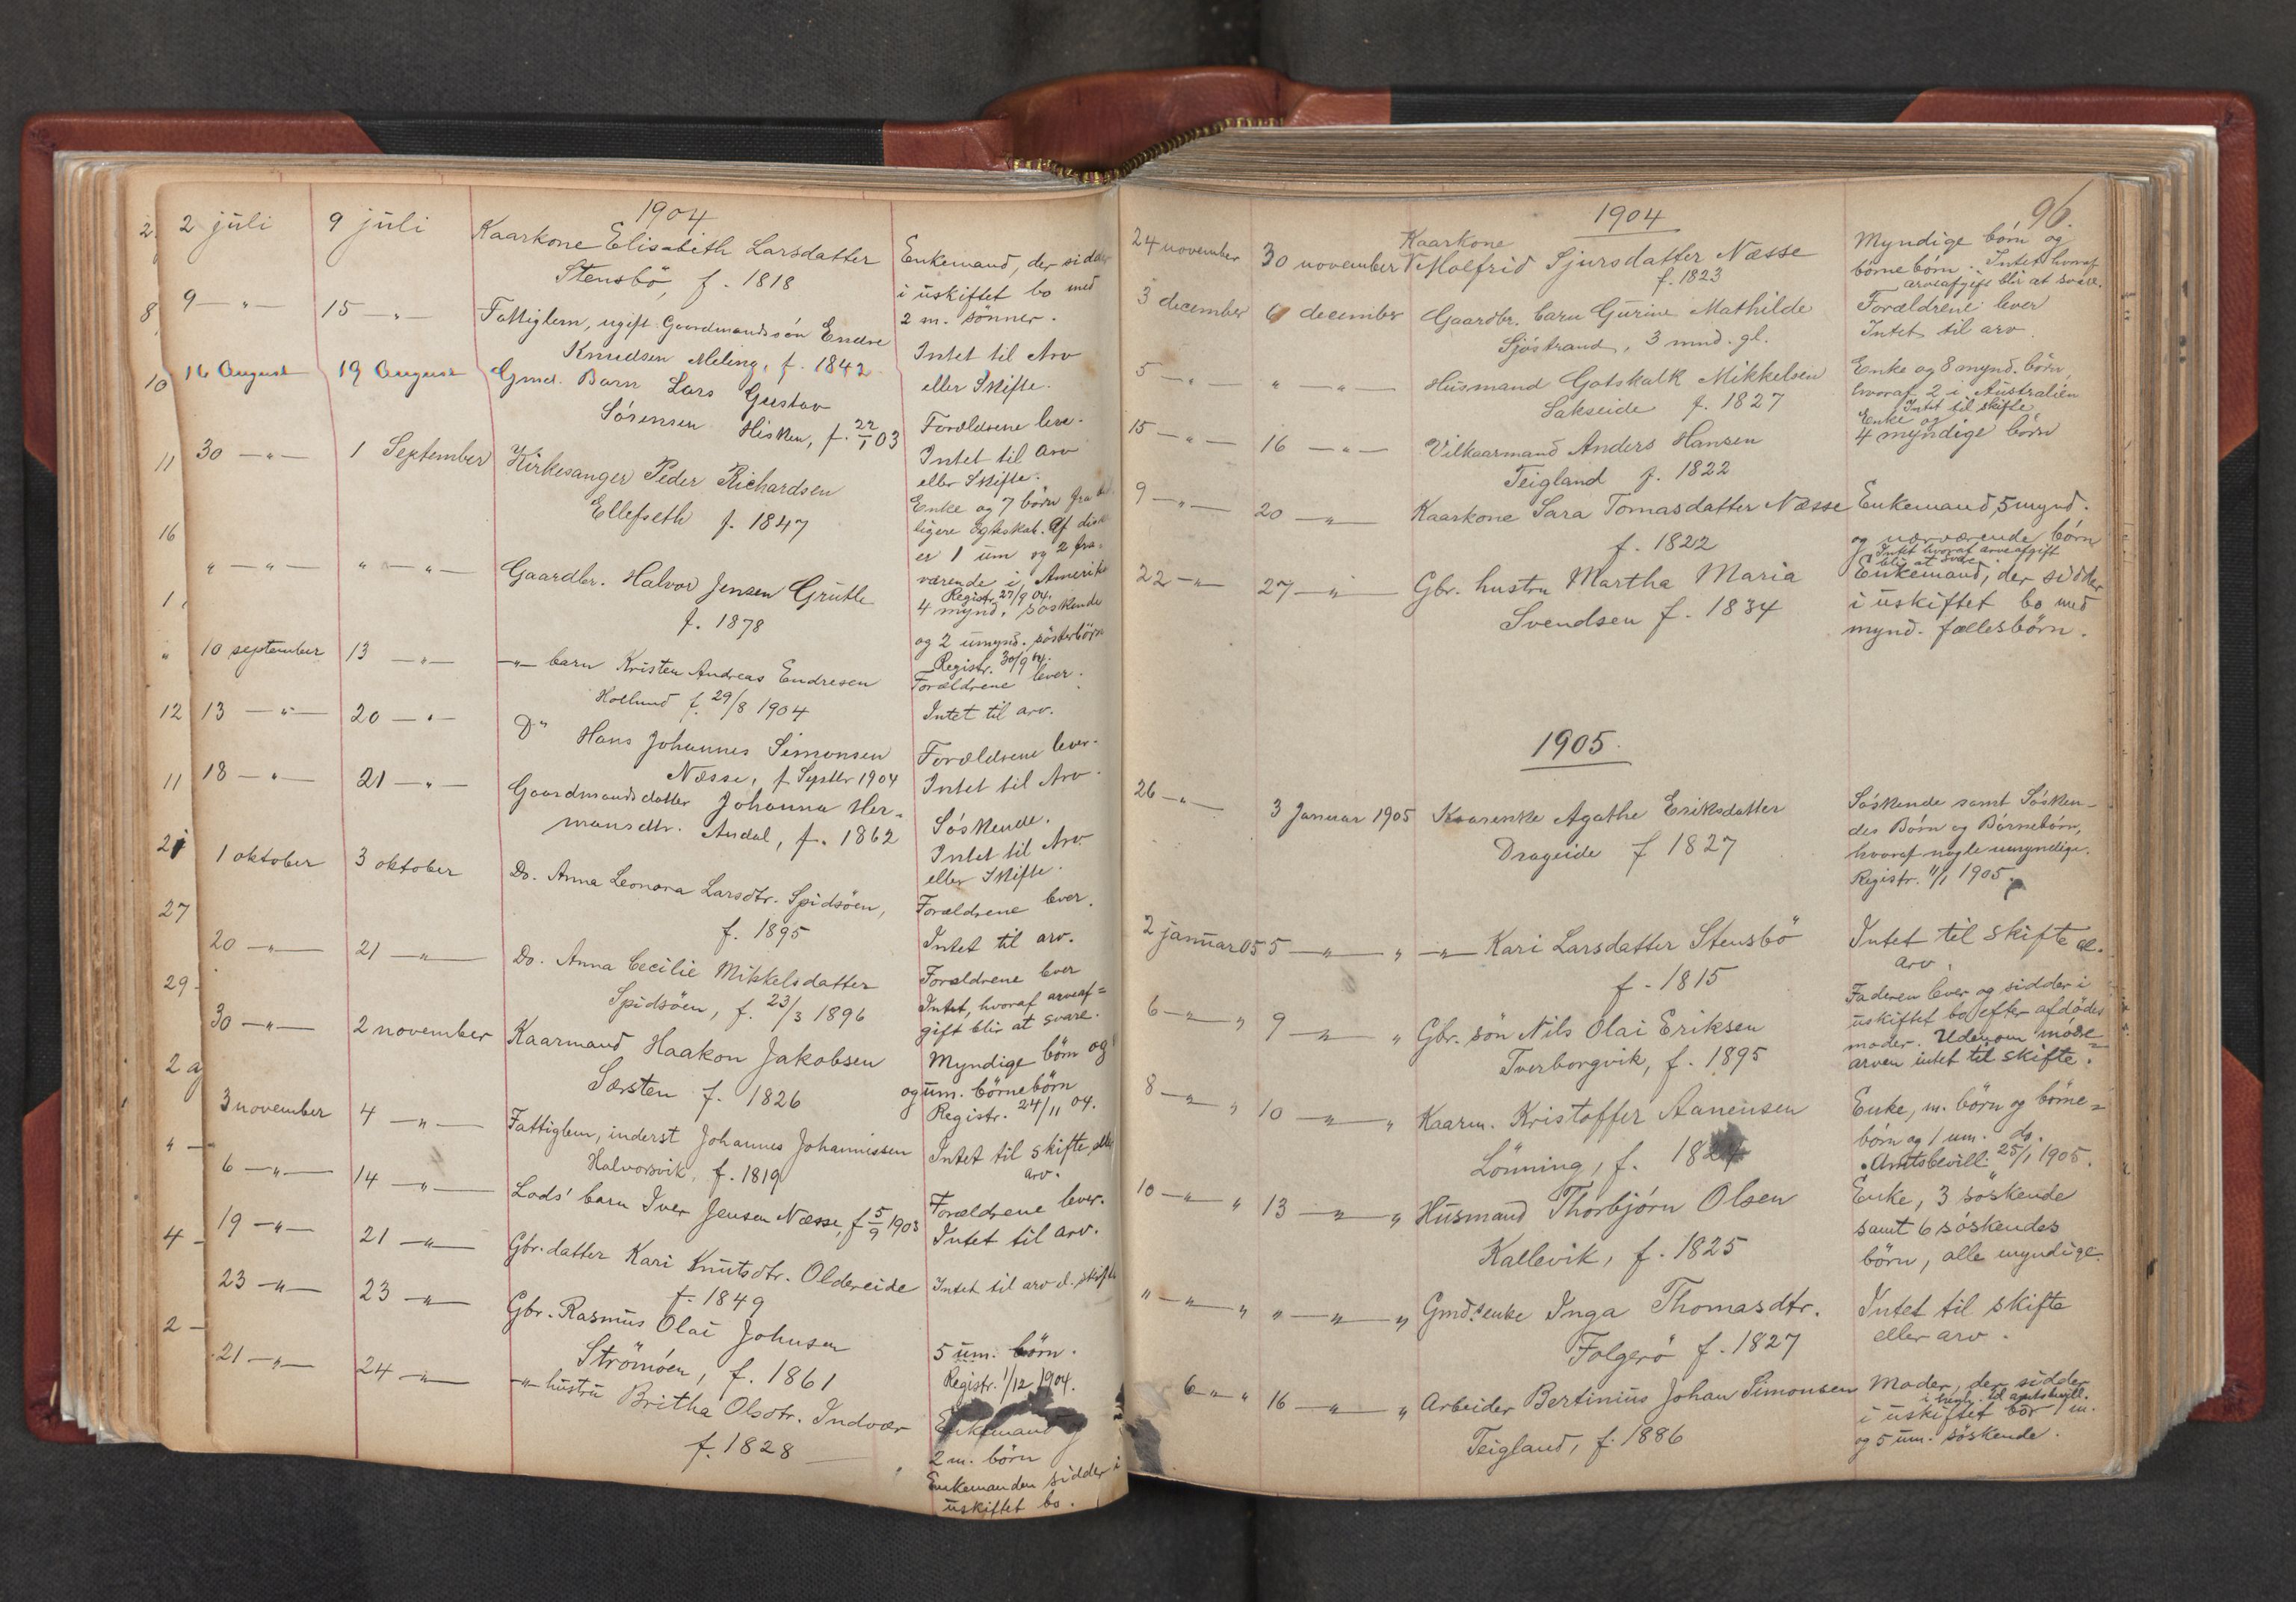 1904
2 juli 9 juli Kaarkone Elisabeth Larsdatter Enkemand, der sidder
Stensbö, f. 1818 i uskiftet bo med
2 m. sönner.
9 — " — 15 — " — Fattiglem, ugift Gaardmandssön Endre Intet til Arv
Knudsen Meling, f. 1842 eller Skifte.
16 August 19 August Gmd. Barn Lars Gustav Forældrene leve.
Sörensen Hisken, f. 22/1 03 Intet til Arv
eller Skifte.
30 — " — 1 September Kirkesanger Peder Richardsen Enke og 7 börn fra
Ellefseth f. 1847 ligere Egteskab. Af disse
er 1 um og 2 fra-
værende i Amerika
Registr. 27/9 04.
" — " — " — " — Gaardbr. Halvor Jensen Grutle 4 mynd. söskende
f. 1878 og 2 umynd. sösterbörn
Registr. 30/9 04.
10 september 13 — " — — " — barn Kristen Andreas Endresen Forældrene lever.
Hollund f. 29/8 1904 Intet til arv.
13 — " — 20 — " — Do Hans Johannes Simonsen Forældrene lever.
Næsse, f. Septbr 1904 Intet til Arv.
18 — " — 21 — " — Gaardmandsdatter Johanna Her- Söskende.
mansdtr. Andal, f. 1862 Intet til Arv
eller Skifte.
1 oktober 3 oktober Do. Anna Leonora Larsdtr. Spidsöen, Forældrene lever.
f. 1895 Intet til arv.
20 — " — 21 — " — Do. Anna Cecilie Mikkelsdatter Forældrene lever
Spidsöen, f. 23/3 1896 Intet, hvoraf arveaf=
gift blir at svare.
30 — " — 2 november Kaarmand Haakon Jakobsen Myndige börn og
Særsten f. 1826 og um. börnebörn
Registr. 24/11 04.
3 november 4 — " — Fattiglem, inderst Johannes Johannissen Intet til skifte eller
Halvorsvik, f. 1819 arv.
6 — " — 14 — " — Lods' barn Iver Jensen Næsse, f. 5/9 1903 Forældrene lever.
Intet til arv.
19 — " — 21 — " — Gbr. datter Kari Knutsdtr. Oldereide Intet til arv el. skifte
f. 1849
23 — " — 23 — " — Gbr. Rasmus Olai Johnsen 5 um. börn.
Strömöen, f. 1861 Registr. 1/12 1904.
21 — " — 24 — " — — " — hustru Britha Olsdtr. Indvær Enkemand
f. 1828 2 m. börn
Enkemanden sidder i
uskiftet bo.
2
8
10
11
16
1
"
12
11
21
27
29
2
4
2
96.
1904
24 november 30 november Kaarkone Malfrid Sjursdatter Næsse Myndige börn og
f. 1823 börnebörn. Intet hvoraf
arveafgift blir at svare.
3 december 6 december Gaardbr. barn Gurine Mathilde Forældrene lever
Sjöstrand, 3 mnd. gl. Intet til arv.
5 — " — " — " — Husmand Gotskalk Mikkelsen Enke og 8 mynd. börn,
Sakseide f. 1827 hvoraf 2 i Australien
Intet til skifte
15 — " — 16 — " — Vilkaarmand Anders Hansen Enke og 4 myndige börn
Teigland f. 1822
9 — " — 20 — " — Kaarkone Sara Tomasdatter Næsse Enkemand, 5 mynd.
f. 1822 og nærværende börn
Intet hvoraf arveafgift
blir at svare.
22 — " — 27 — " — Gbr. hustru Martha Maria Enkemand, der sidder
Svendsen f. 1834 i uskiftet bo med
mynd. fællesbörn.
1905.
26 — " — 3 Januar 1905 Kaarenke Agathe Eriksdatter Söskende samt Sösken-
Drageide f 1827 des Börn og Börnebörn,
hvoraf nogle umyndige.
Registr. 11/1 1905.
2 januar 05 5 — " — " — " — Kari Larsdatter Stensbö Intet til skifte el.
f. 1815 arv.
6 — " — " 9 — " — " Gbr. sön Nils Olai Eriksen Faderen lever og sidder i
Tverborgvik, f. 1895 uskiftet bo efter afdöde
moder. Udenom mödre=
arven intet til skifte.
8 — " — " 10 — " — " Kaarm. Kristoffer Aanensen Enke, m. börn og börne=
Lönning, f. 18 börn og 1 um. do.
Amtsbevill. 25/1 1905.
10 — " — " 13 — " — " Husmand Thorbjörn Olsen Enke, 3 söskende
Kallevik, f. 1825 samt 6 söskendes
börn, alle myndige.
" — " — " " — " — " Gmds. enke Inga Thomasdtr. Intet til skifte
Folgerö f. 1827 eller arv.
6 — " — " 16 — " — " Arbeider Bertinius Johan Simonsen Moder, der sidder
Teigland, f. 1886 i uskiftet bo 1 m.
og 5 um. söskende.